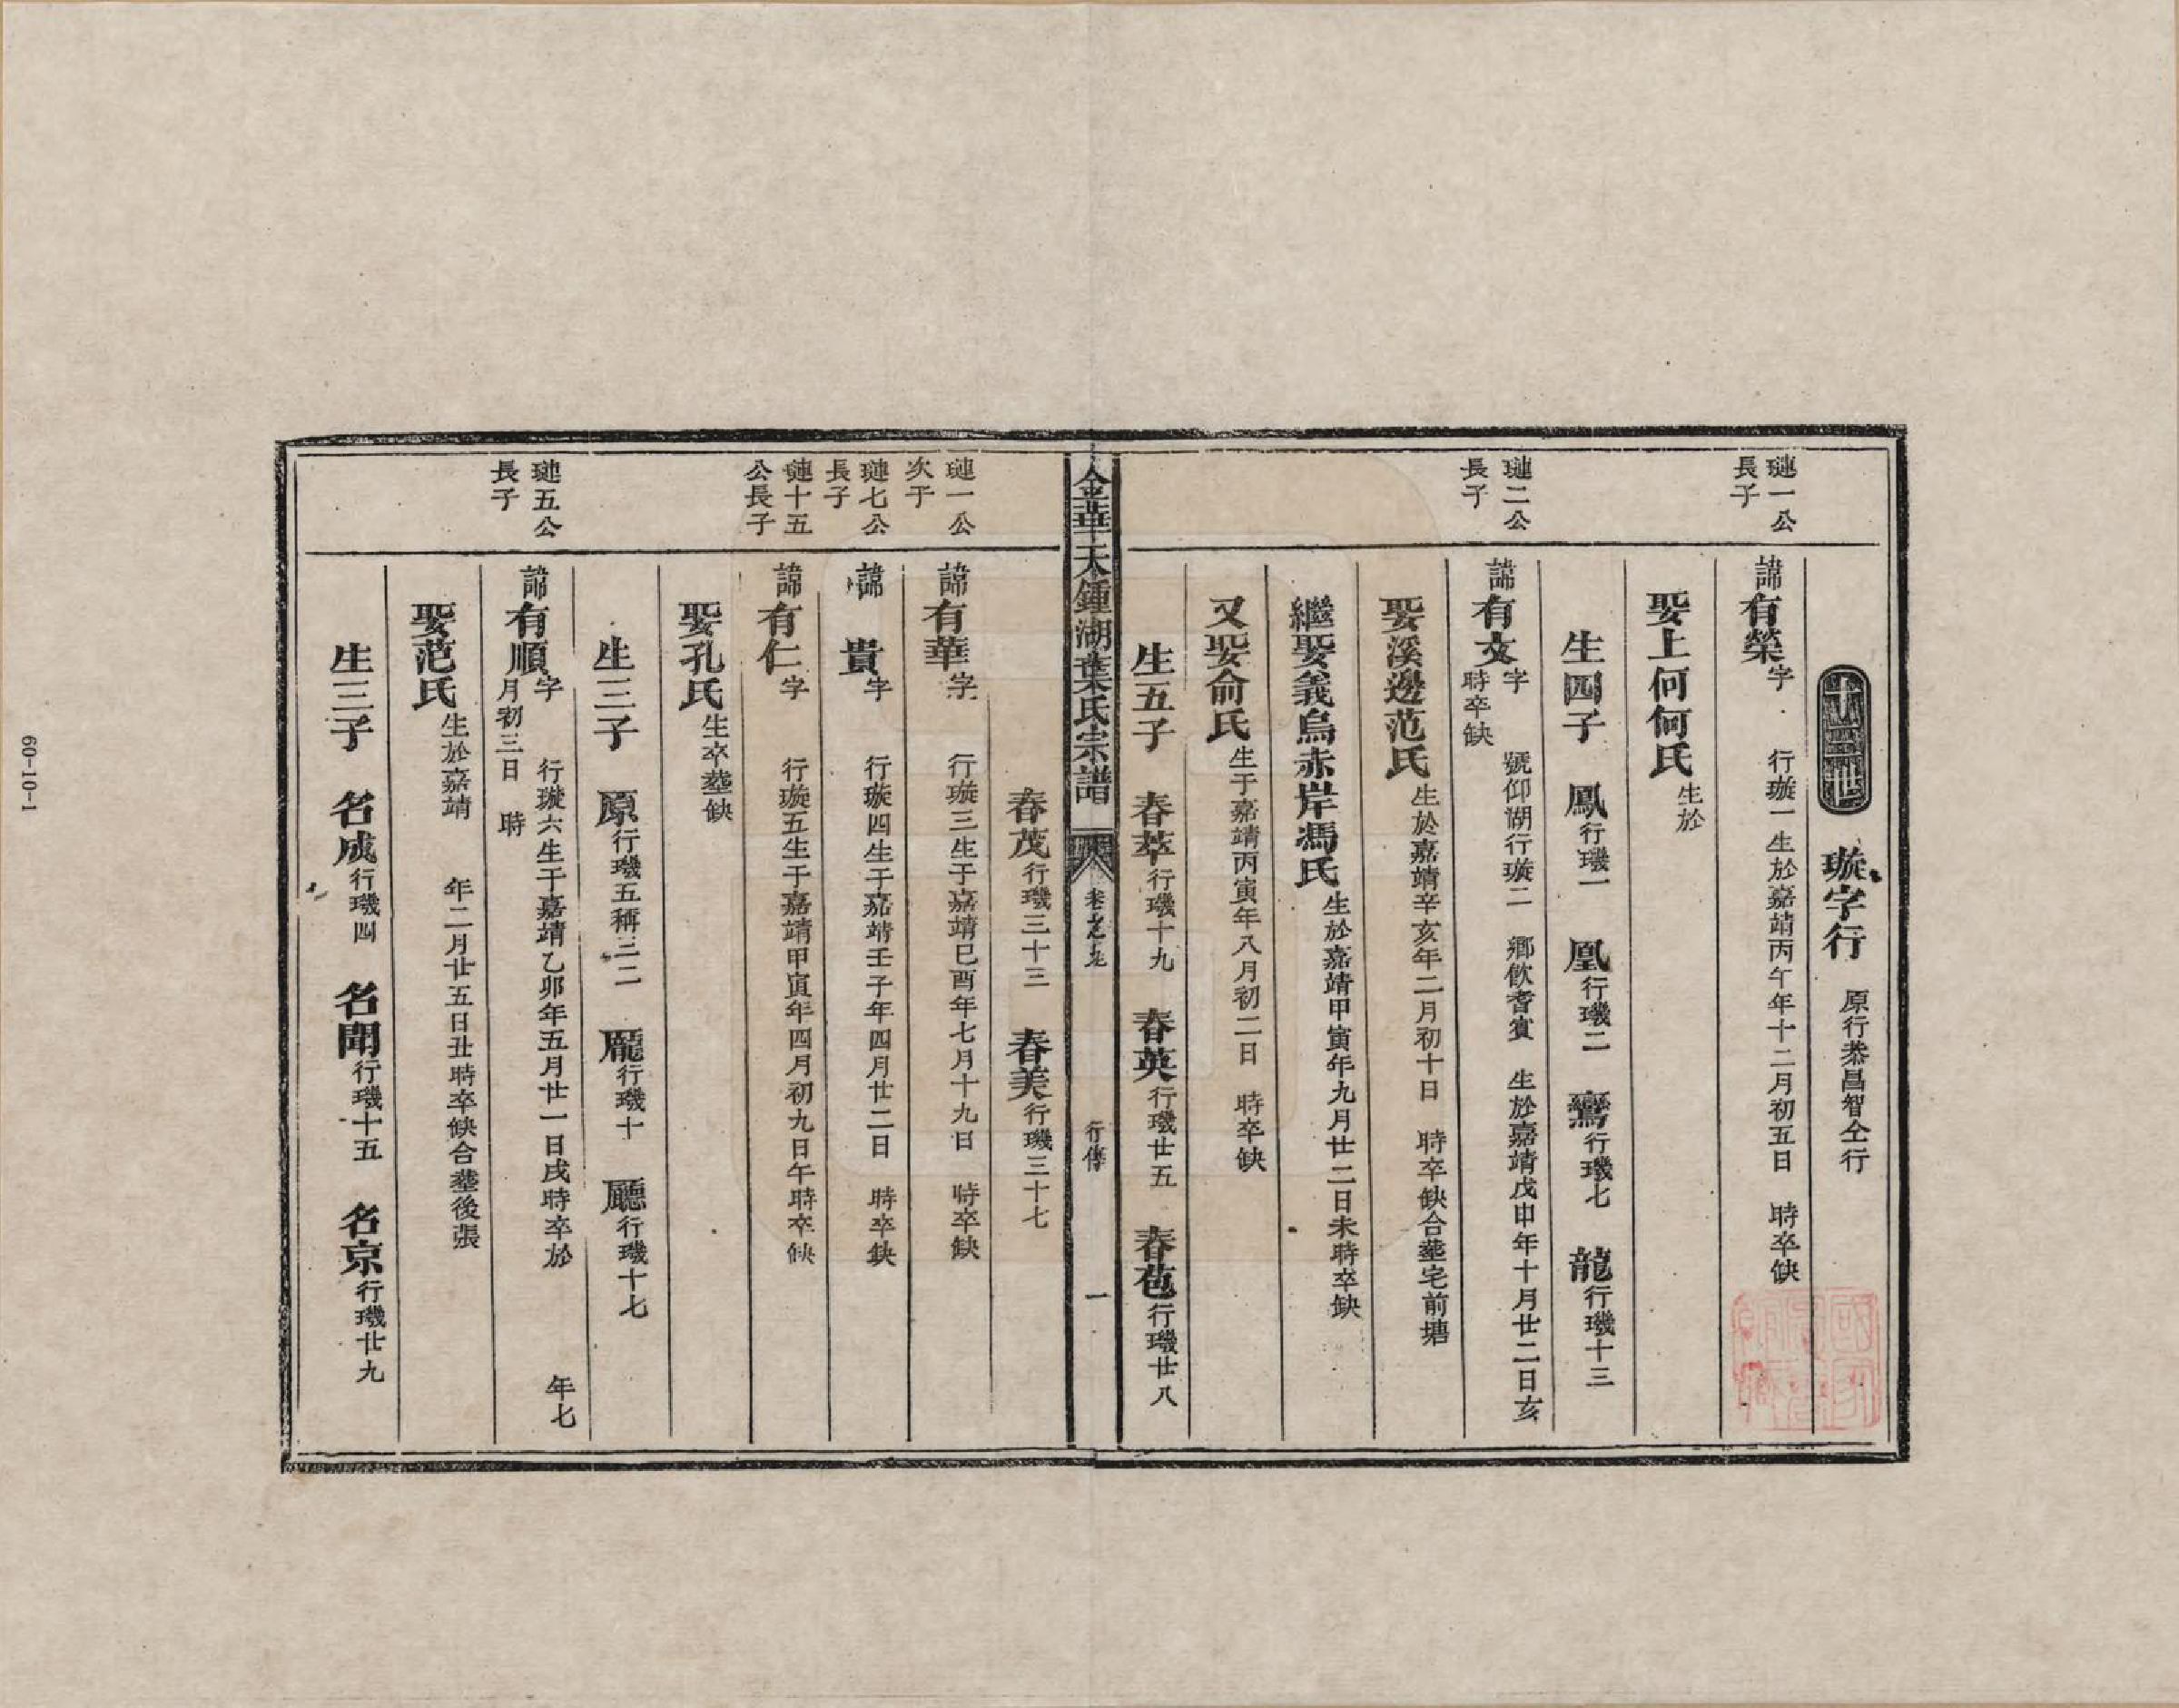 十三世
璇字行 原行恭昌智仝行
璉一公
長子
諱有榮字 行璇一生於嘉靖丙午年十二月初五日 時卒缺
娶上何何氏生於
生四子 鳳行璣一 凰行璣二 鸞行璣七 龍行璣十三
璉二公
長子
諱有文字 號仰湖行璇二 鄉飲耆賓 生於嘉靖戊申年十月廿二日亥
時卒缺
娶溪邊范氏生於嘉靖辛亥年二月初十日 時卒缺合塟宅前塘
繼娶義烏赤岸馮氏生於嘉靖甲寅年九月廿二日未時卒缺
又娶俞氏生于嘉靖丙寅年八月初二日 時卒缺
生五子 春萃行璣十九 春英行璣廿五 春苞行璣廿八
金華天鍾湖葉氏宗譜 卷之九 行傳 一
春茂行璣三十三 春美行璣三十七
璉一公
次子
諱有華字 行璇三生于嘉靖己酉年七月十九日 時卒缺
璉七公
長子
諱 貴字 行璇四生于嘉靖壬子年四月廿二日 時卒缺
璉十五
公長子
諱有仁字 行璇五生于嘉靖甲寅年四月初九日午時卒缺
娶孔氏生卒塟缺
生三子 原行璣五稱三二 龐行璣十 廳行璣十七
璉五公
長子
諱有順字 行璇六生于嘉靖乙卯年五月廿一日戌時卒於 年七
月初三日 時
娶范氏生於嘉靖 年二月廿五日丑時卒缺合塟後張
生三子 名成行璣四 名聞行璣十五 名京行璣廿九
60-10-1